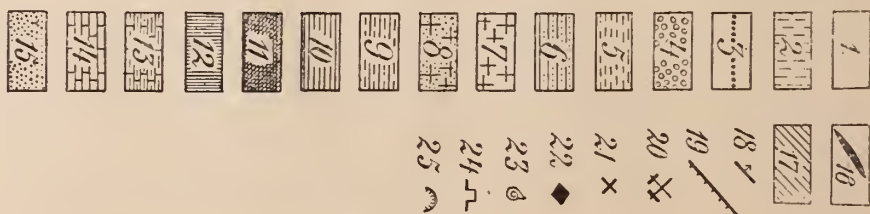 1.
2
3
4
5
6
7
8
9
10
11
12
13
14
15
16
17
18
19
20
21
22
23
24
25